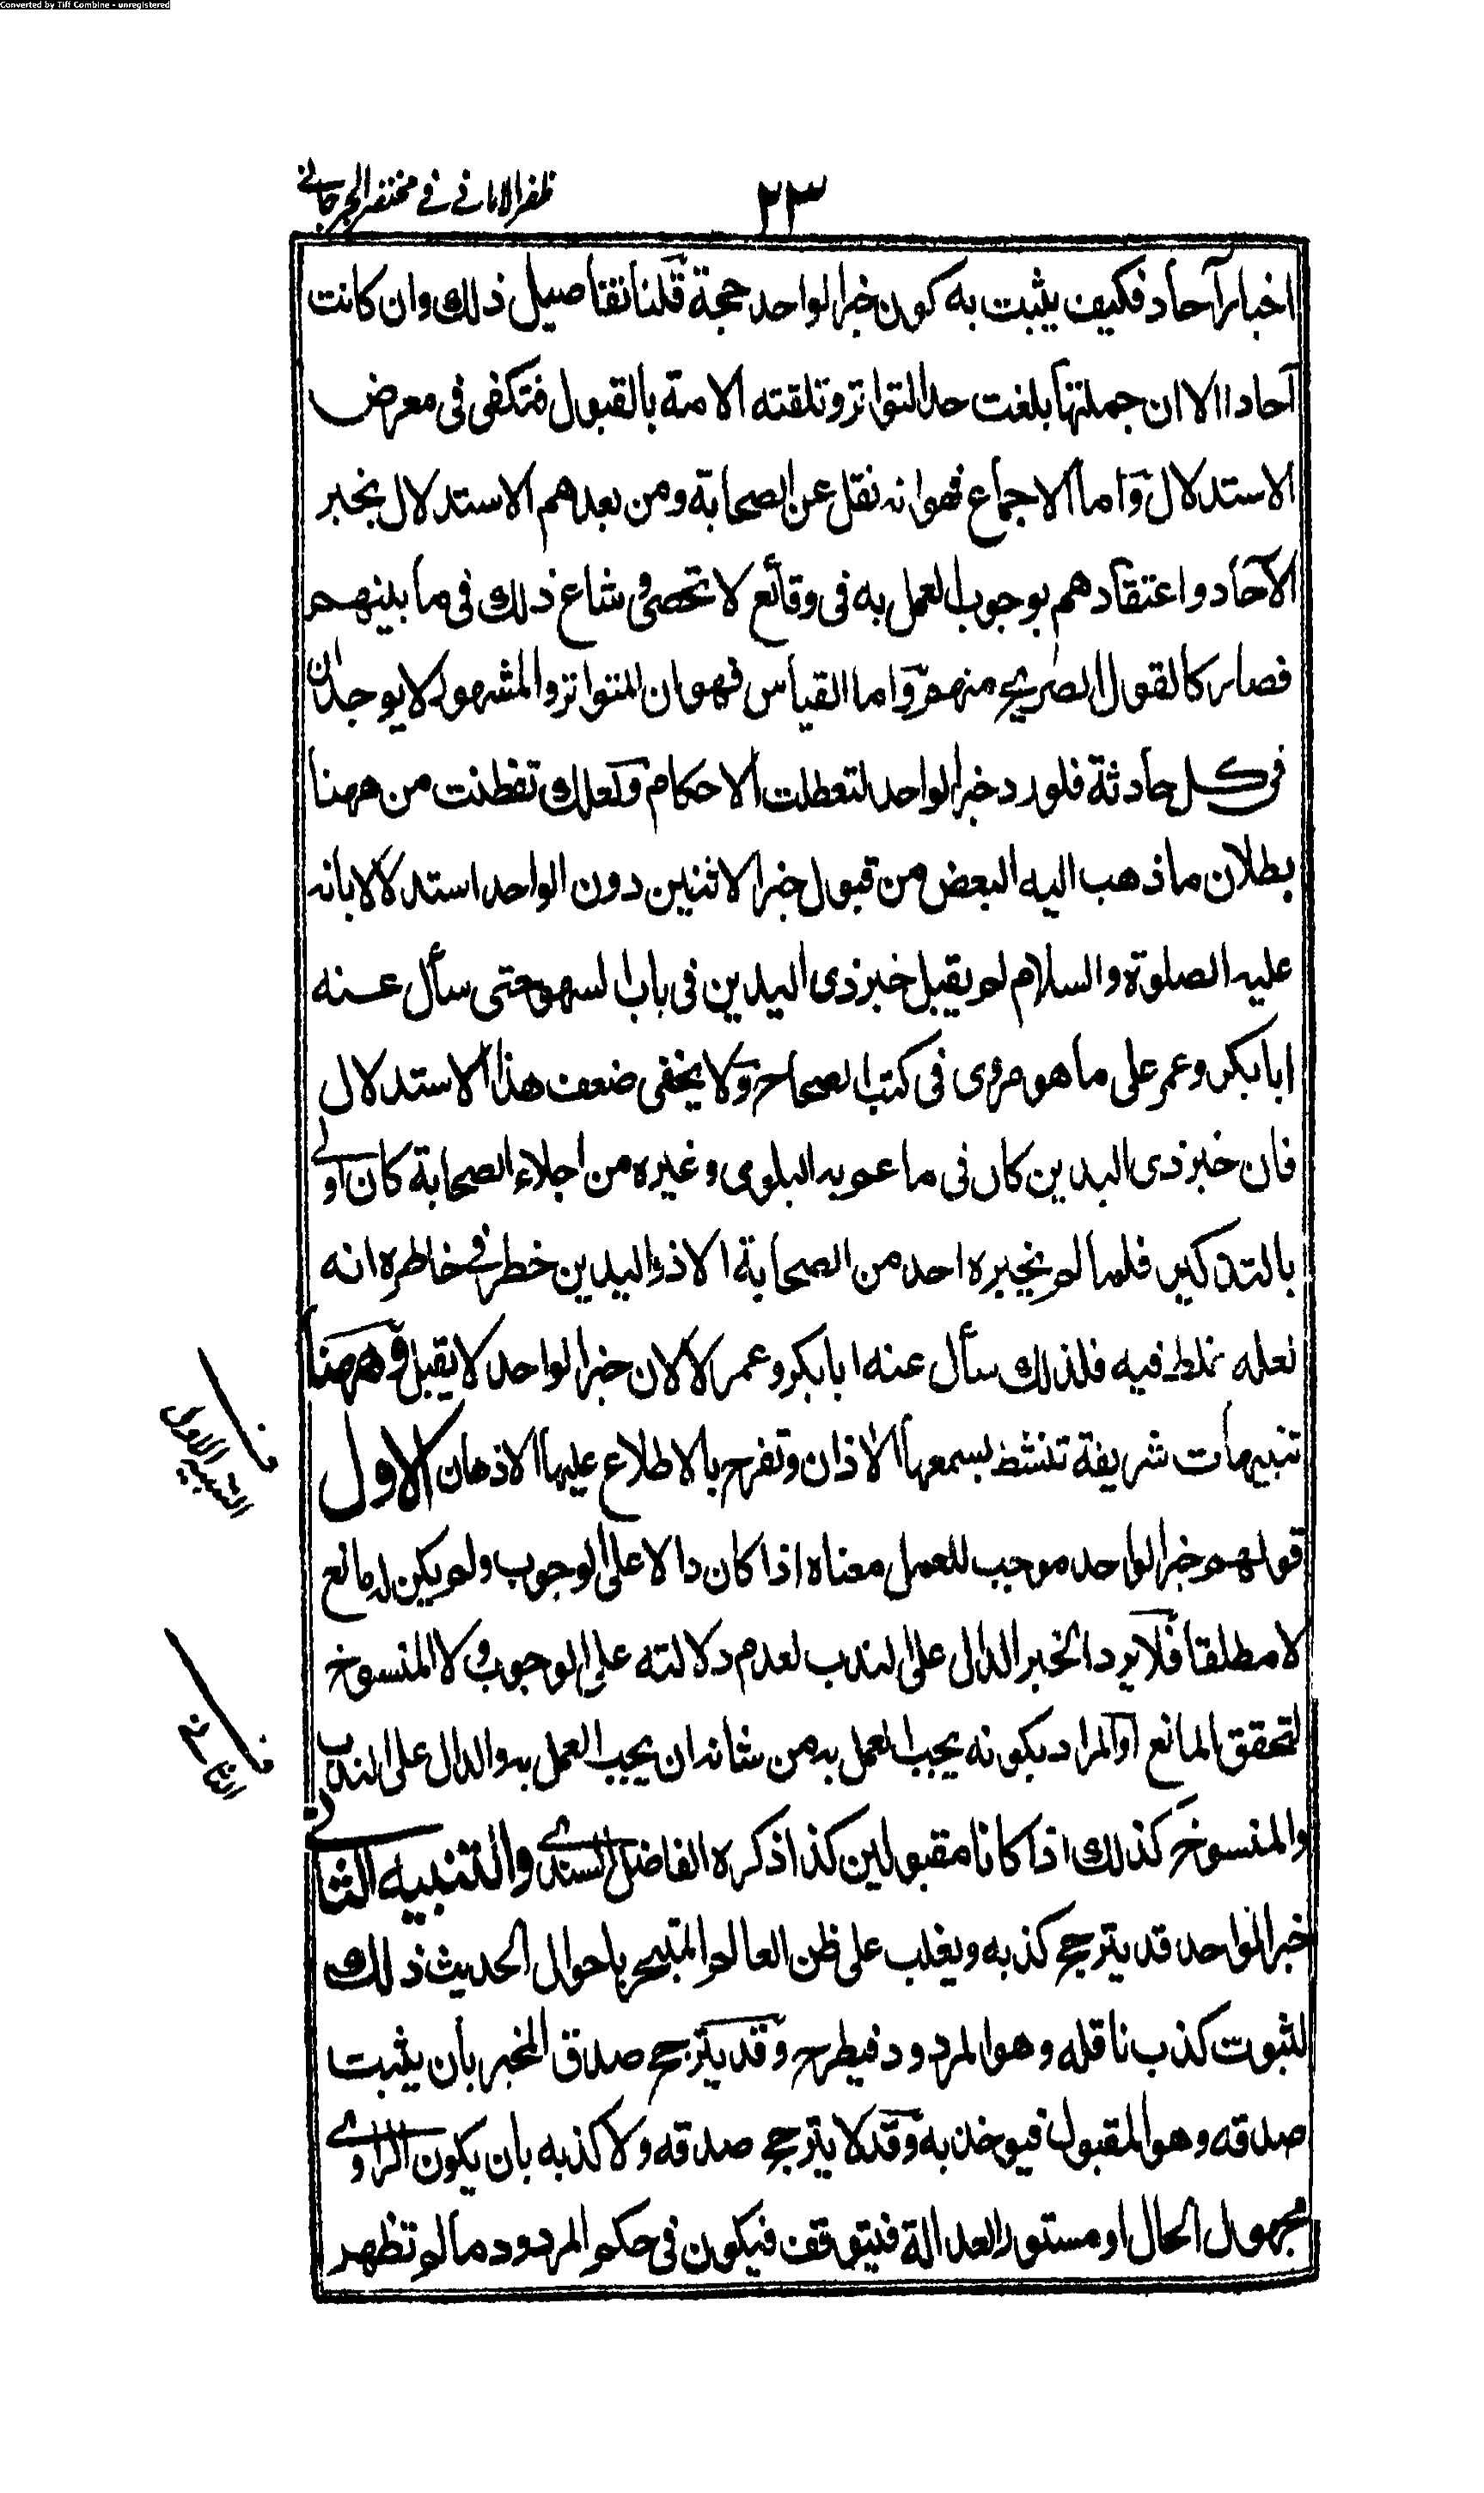 Converted by Tiff Combine - unregistered
ظفر الامانی فی مختصر الجرجانی
۲۳
اخبار آحاد فکیف یثبت به کون خبر الواحد حجة قلنا تفاصیل ذلك وان کانت
آحادا الا ان جملتها بلغت حد التواتر وتلقته الامة بالقبول فتکفی فی معرض
الاستدلال واما الاجماع فهو انه نقل عن الصحابة ومن بعدهم الاستدلال بخبر
الآحاد واعتقادهم بوجوب العمل به فی وقائع لا تحصی وشاع ذلك فی ما بینهم
فصار کالقول الصریح منهم واما القیاس فهو ان المتواتر والمشهور لا یوجدان
فی کل حادثة فلو رد خبر الواحد لتعطلت الاحکام ولعلك تفطنت من ههنا
بطلان ما ذهب الیه البعض من قبول خبر الاثنین دون الواحد استدلالا بانه
علیه الصلوة والسلام لم یقبل خبر ذی الیدین فی باب السهو حتی سأل عنه
ابا بکر وعمر علی ما هو مروی فی کتب الصحاح ولا یخفی ضعف هذا الاستدلال
فان خبر ذی الیدین کان فی ما عم به البلوی وغیره من اجلاء الصحابة کان اولی
بالتذکیر فلما لم یخبره احد من الصحابة الا ذو الیدین خطر فی خاطره انه
لعله غلط فیه فلذلك سأل عنه ابا بکر وعمر لا لان خبر الواحد لا یقبل وههنا
تنبیهات شریفة تنشط بسمعها الآذان وتفرح بالاطلاع علیها الاذهان الاول
قولهم خبر الواحد موجب للعمل معناه اذا کان دالا علی الوجوب ولم یکن له مانع
لا مطلقا فلا یرد الخبر الدال علی الندب لعدم دلالته علی الوجوب ولا المنسوخ
لتحقق المانع او المراد بکونه یجب العمل به من شانه ان یجب العمل به والدال علی الندب
والمنسوخ کذلك اذا کانا مقبولین کذا ذکره الفاضل السندی والتنبیه الثانی
خبر الواحد قد یترجح کذبه ویغلب علی ظن العالم المتبحر باحوال الحدیث ذلك
لثبوت کذب ناقله وهو المردود فیطرح وقد یترجح صدق المخبر بأن یثبت
صدقه وهو المقبول فیوخذ به وقد لا یترجح صدقه ولا کذبه بان یکون الراوی
مجهول الحال او مستور العدالة فیتوقف فیکون فی حکم المردود ما لم تظهر
ف
التنبیه الاول
ف